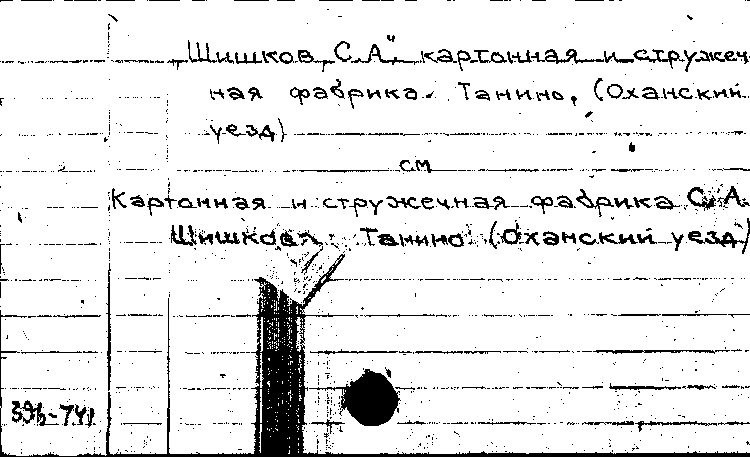 „Шишков, С.А", картонная и стружеч-
ная фабрика. Танино, (Оханский
уезд)
см
Картонная и стружечная фабрика С. А.
Шишкова. Танино (Оханский уезд)